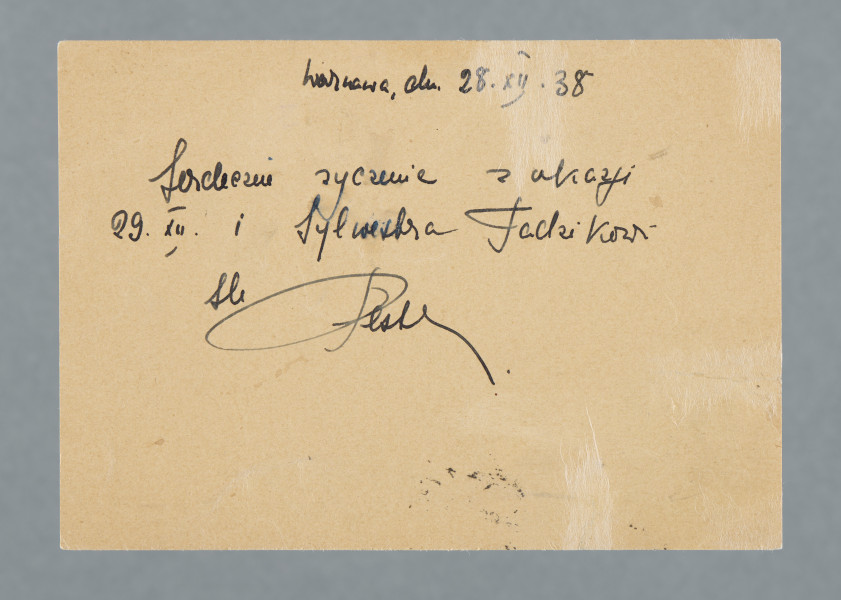 Warszawa, dn. 28.XII.38
Serdeczne życzenia z okazji
29.XII. i Sylwestra Tadzikowi
śle